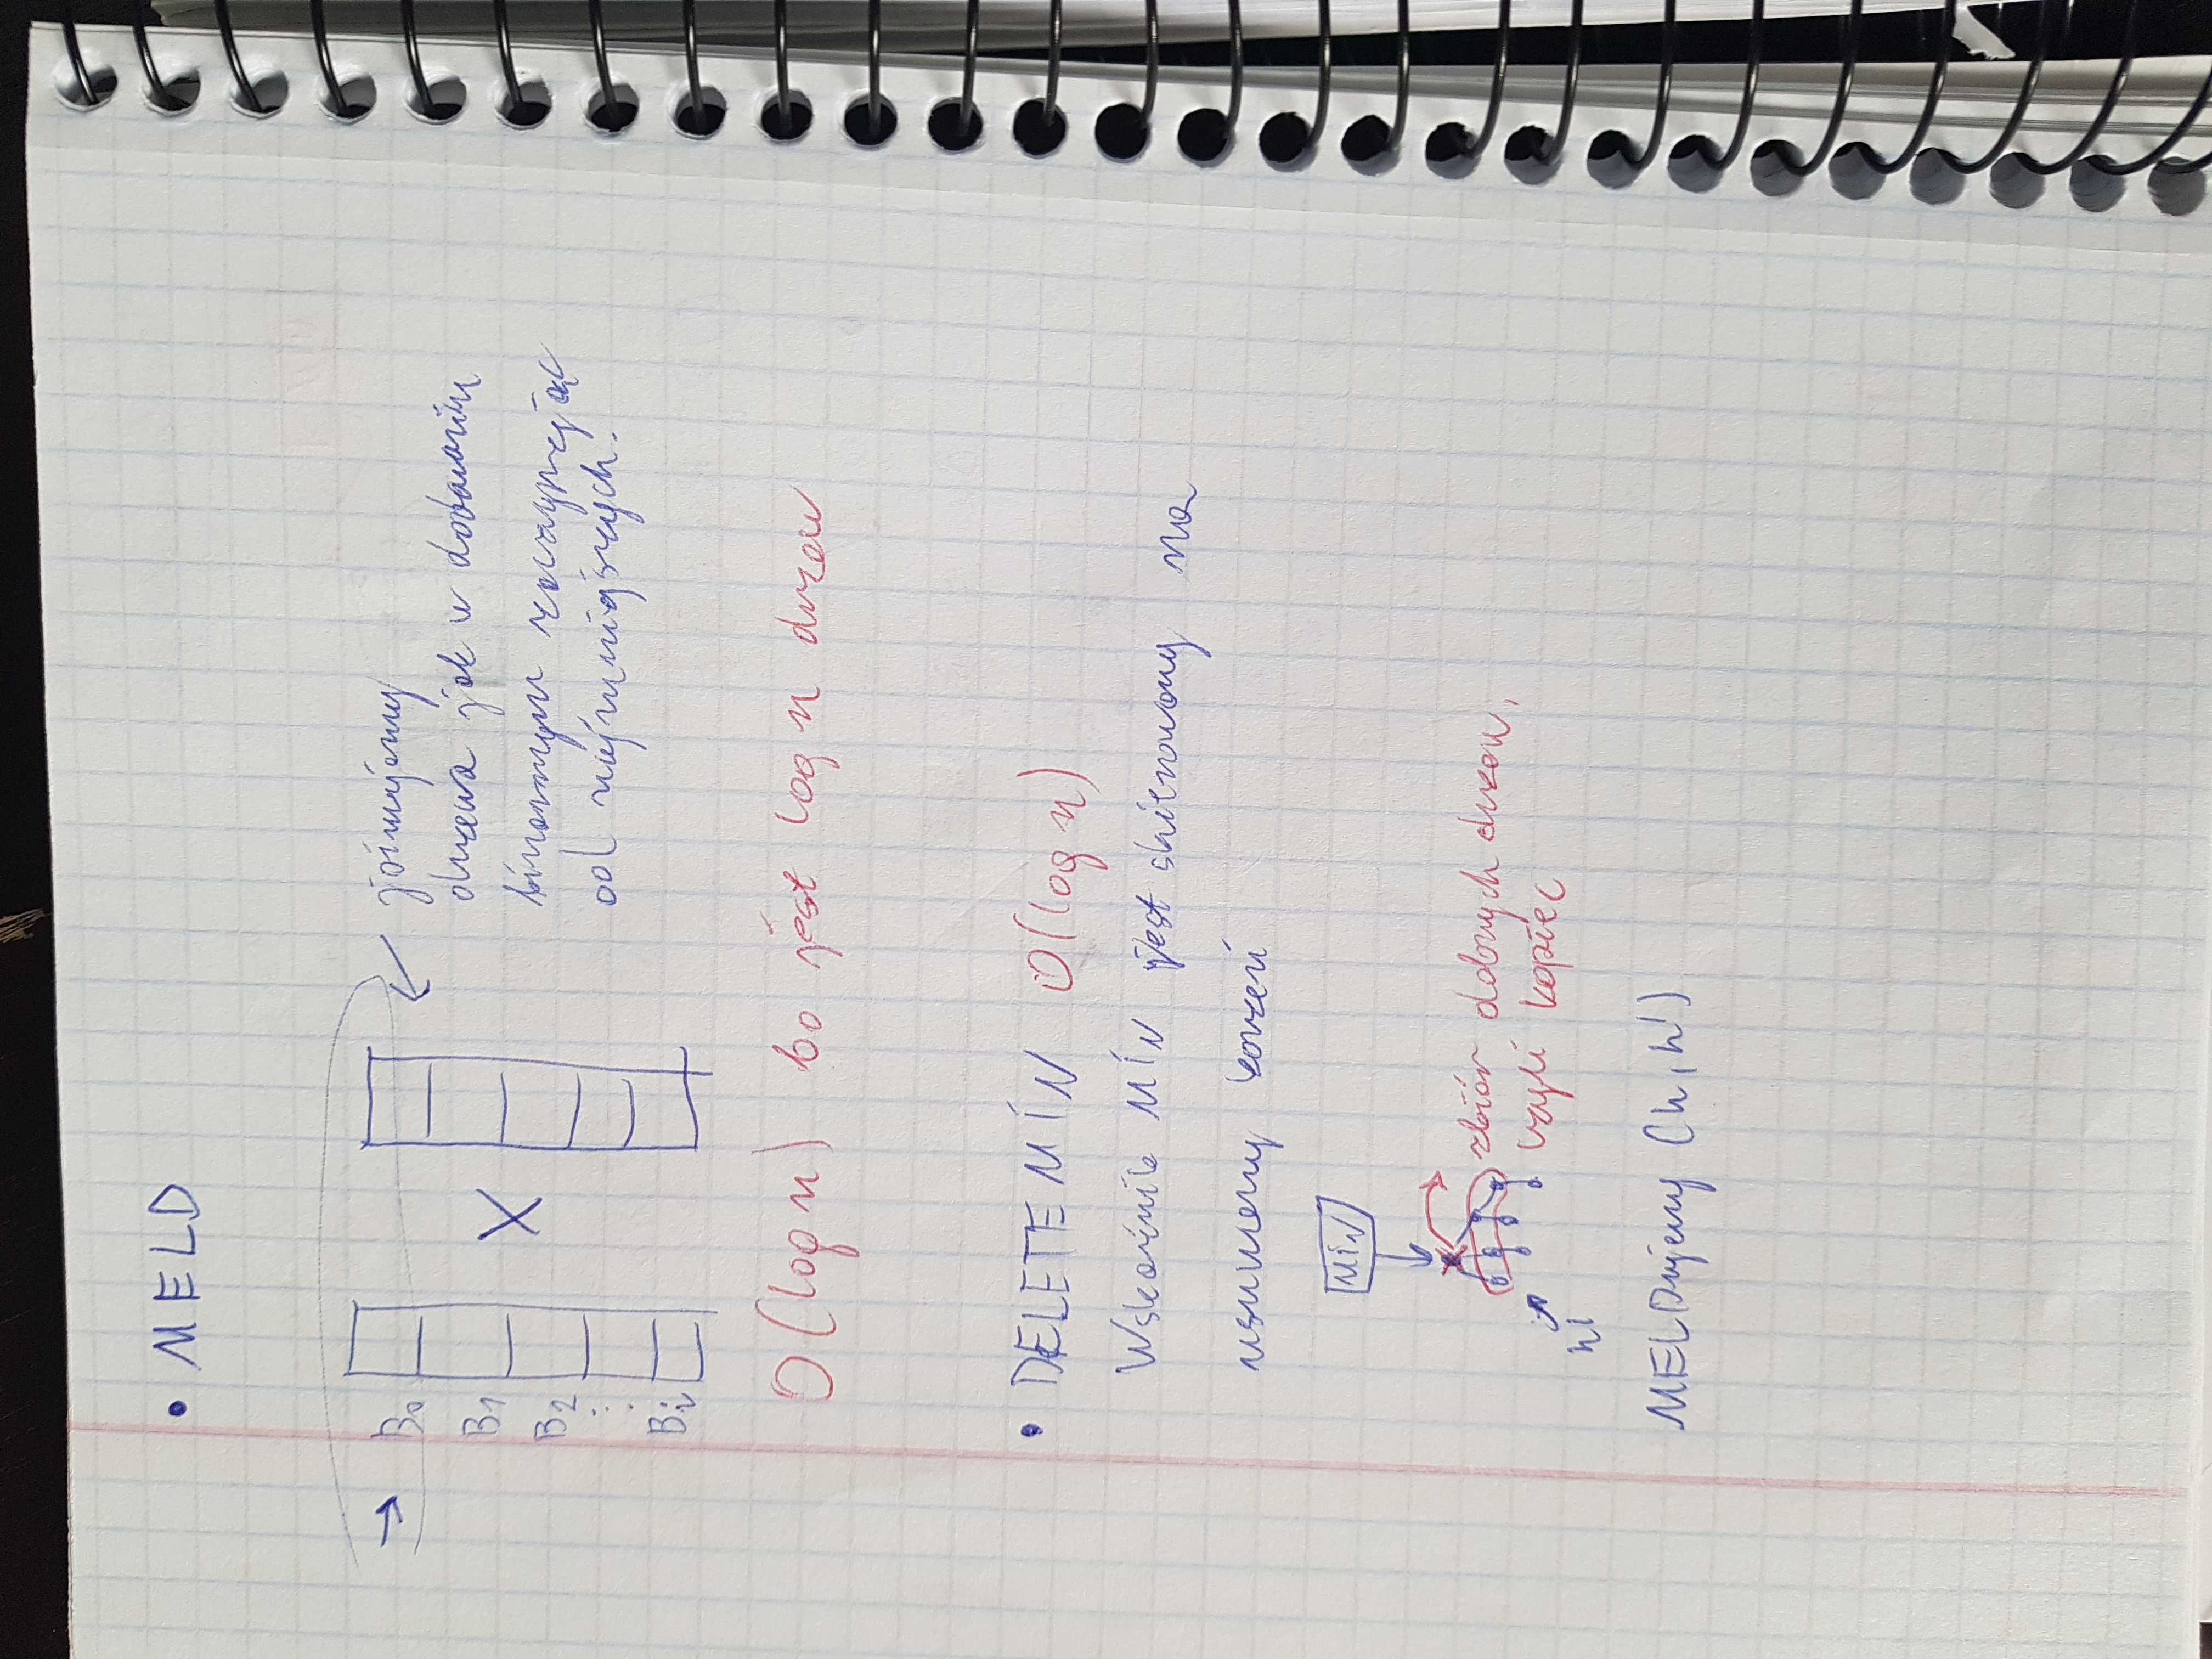 • MELD
B0
B1
B2
⋮
Bi
X
joinujemy
drzewa jak w dodawaniu
binarnym zaczynając
od najmniejszych.
O(log n) bo jest log n drzew
• DELETE MIN O(log n)
Wskaźnik MIN jest skierowany na
usuwany korzeń
MIN
zbiór dobrych drzew,
czyli kopiec
h'
MELDujemy (h, h')